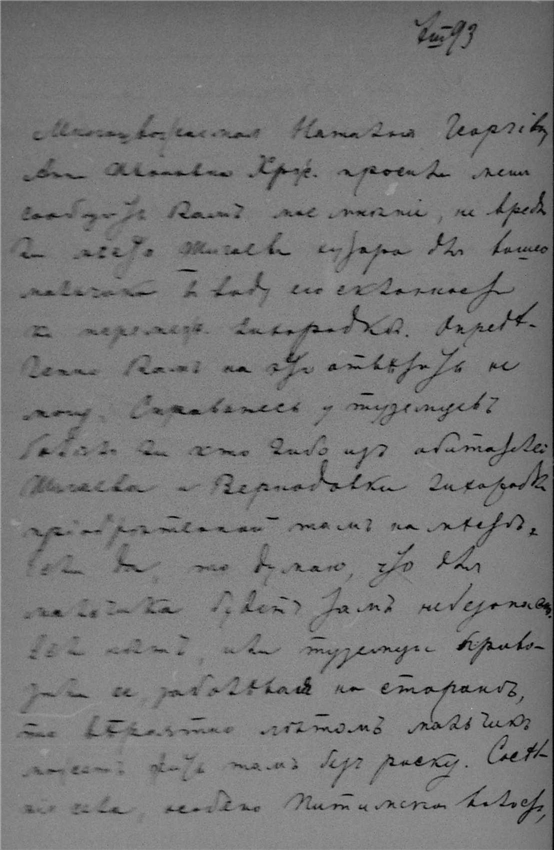 7 III 93
Многоуважаемая Наталья Георгіевна
Анна Ивановна просила меня
сообщить Вамъ мое мнѣніе, не вредно
ли мѣсто Шигаева для вашего
мальчика въ виду его склонности
къ перемеж. лихорадкѣ. Опредѣ-
ленно Вамъ на это отвѣтить не
могу. Справьтесь у туземцевъ
болѣлъ ли кто либо изъ обитателей
Шигаева и Вернадовки лихорадкой
пріобрѣтенной тамъ на мѣстѣ,
если да, то думаю, что для
мальчика будетъ тамъ небезопасно.
Если нѣтъ, или туземцы приво-
зили ее, заболѣвая на сторонѣ,
то вѣроятно лѣтомъ мальчикъ
можетъ жить тамъ безъ риску. Сосѣд-
нія села, особено волость,